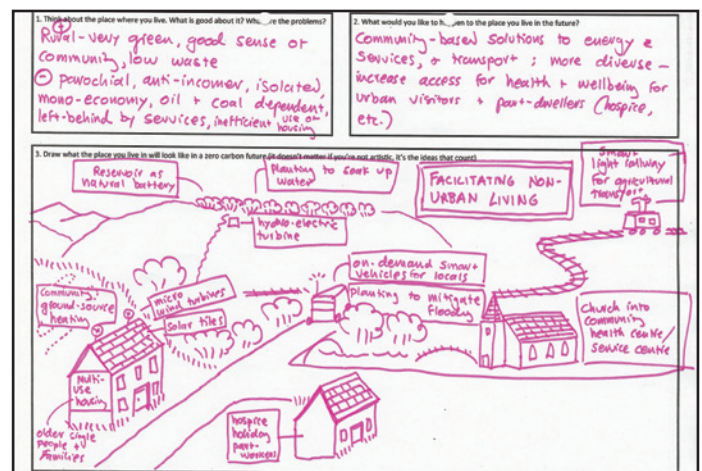 1. Think about the place where you live. What is good about it? What are the problems?
+
Rural - very green, good sense of
community, low waste
- parochial, anti-incomer, isolated,
mono-economy, oil + coal dependent,
left-behind by services, inefficient use of
housing
2. What would you like to happen to the place you live in the future?
Community-based solutions to energy &
services, + transport ; more diverse -
increase access for health + wellbeing for
urban visitors + part-dwellers (hospice,
etc.)
3. Draw what the place you live in will look like in a zero carbon future (it doesn't matter if you're not artistic, it's the ideas that count)
Reservoir as
natural battery
Planting to soak up
water
FACILITATING NON-
URBAN LIVING
Smart
light railway
for agricultural
transport
hydro-electric
turbine
on-demand smart
vehicles for locals
Community
ground-source
heating
micro
wind turbines
Solar tiles
Planting to mitigate
flooding
Church into
community
health centre/
service centre
Multi-
use
housing
older single
people +
families
hospice
holiday
part-
workers